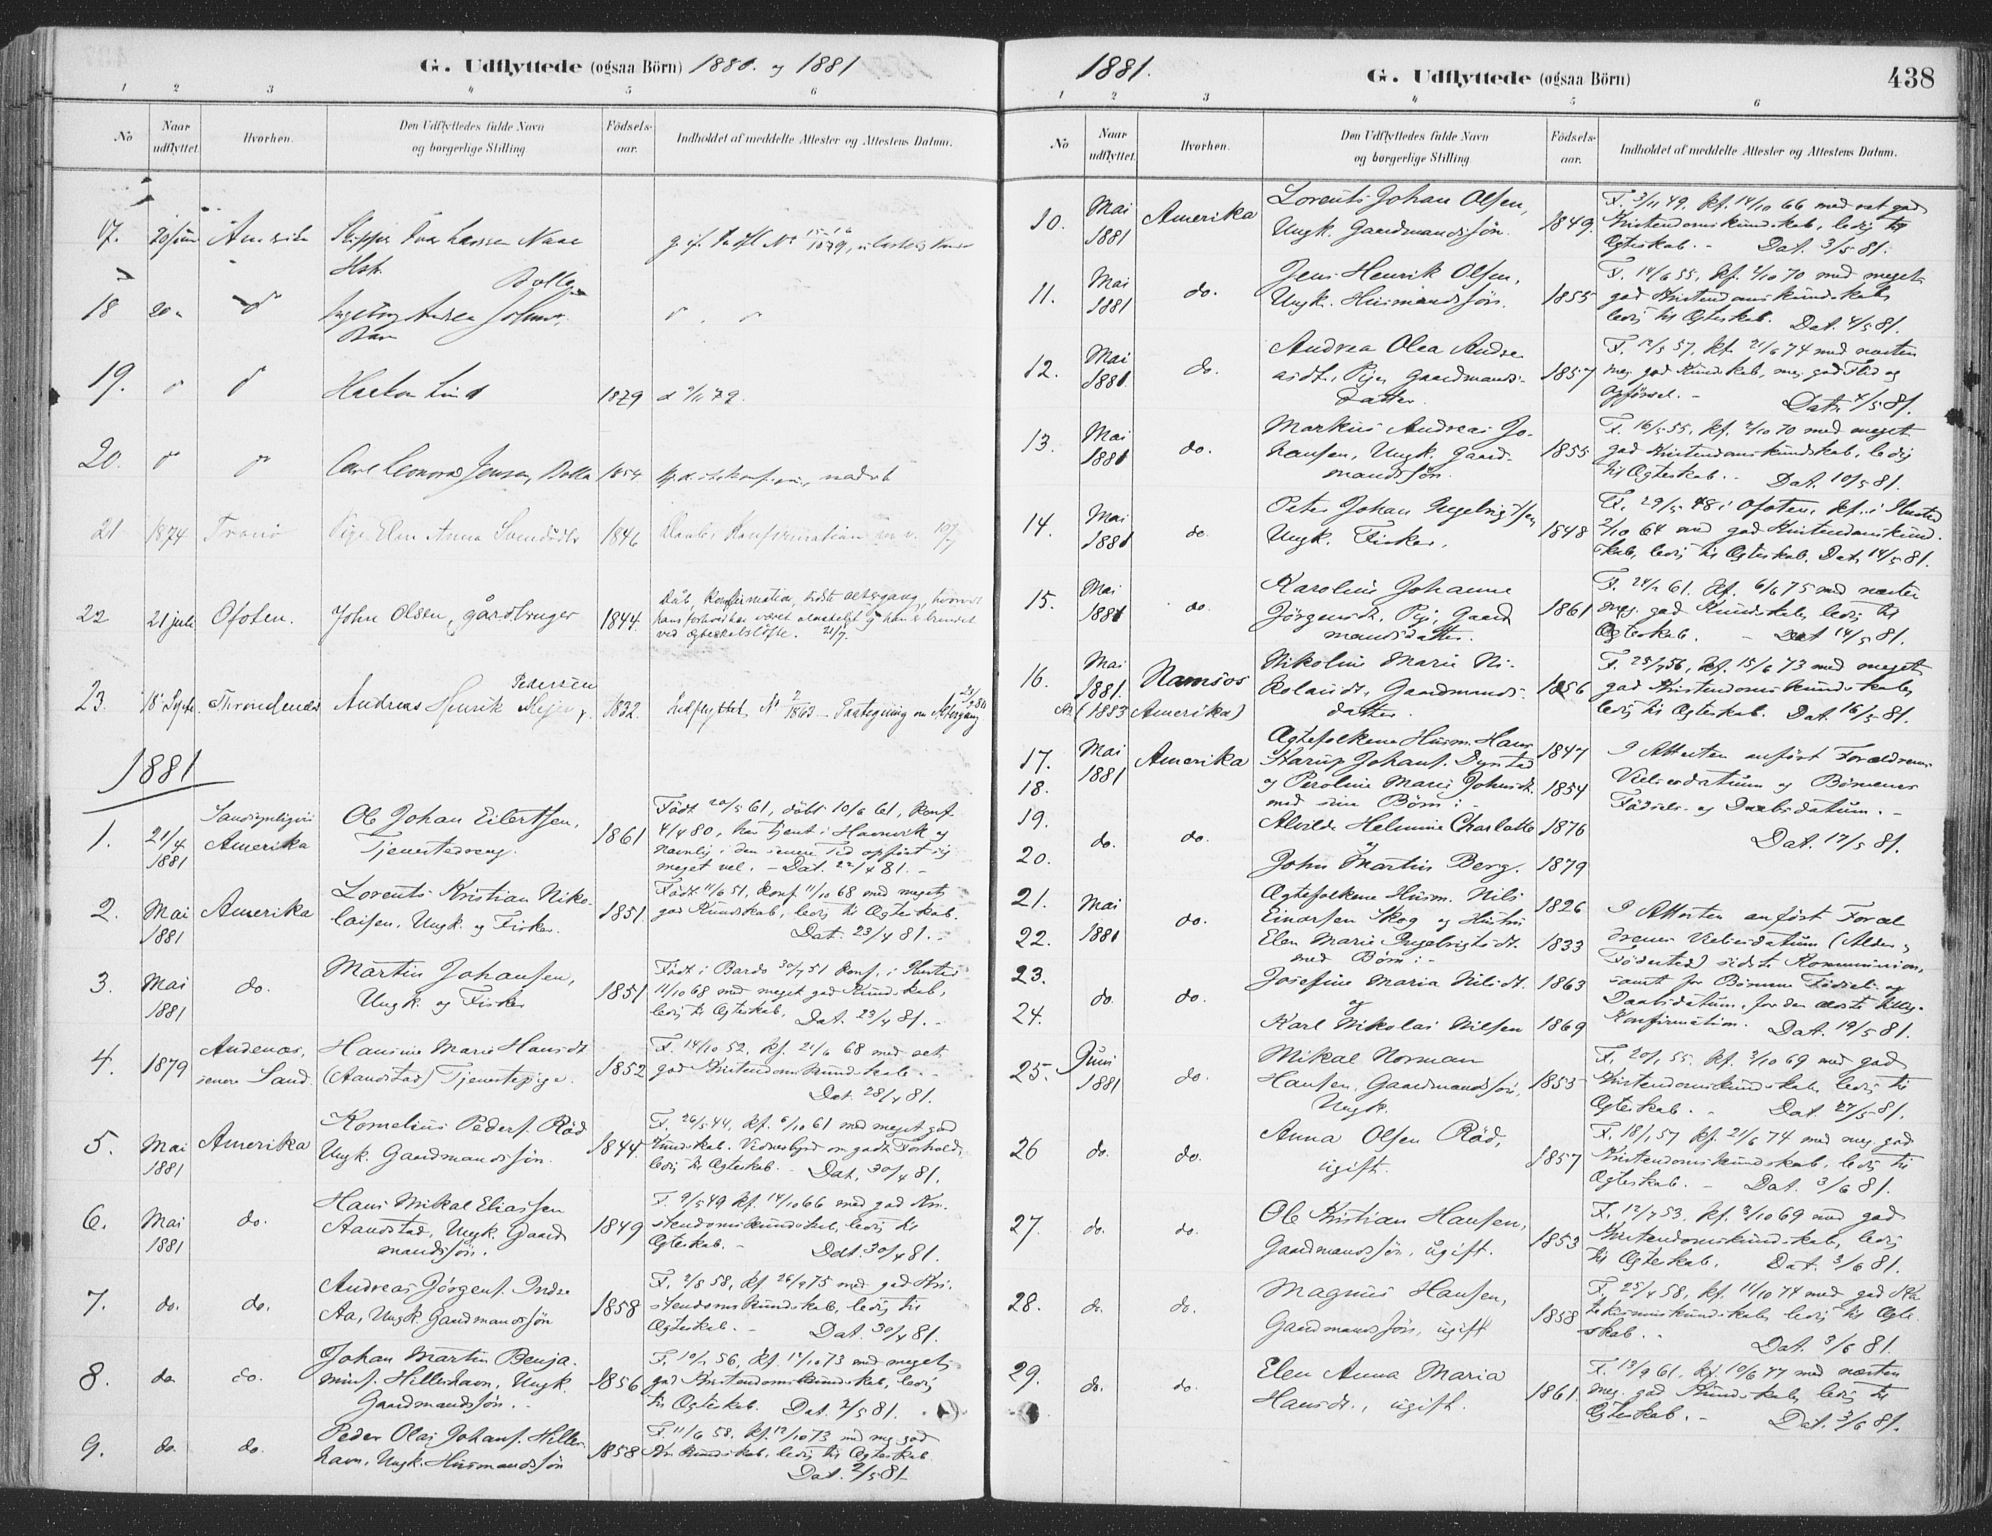 G. Udflyttede (ogsaa Börn) 1880. og 1881
1 2 3 4 5 6
No
Naar udflyttet.
Hvorhen.
Den Udflyttedes fulde Navn og borgerlige Stilling
Födsels-aar.
Indholdet af meddelte Attester og Attestens Datum.
17. 20 juni
18 20
19. 1879
20. Carl Jensen, 1854
21 1874 Tranö Pige Elen Anna 1846
22 21 juli Ofoten. John Olsen, gårdbruger 1844.
23. 18 Septr. Throndenæs Andreas Henrik Pedersen 1832. Udflyttet
1881
1. 21/4 1881 Sandsynligvis Amerika Ole Johan Eilertsen, Tjenestedreng. 1861
Födt 20/5 61, döbt 10/6 61, Konf.
4/4 80, har tjent i Havnvik og
navnlig i den senere Tid opfört sig
meget vel. - Dat. 22/4 81. -
2. Mai 1881 Amerika Lorents Kristian Nikolaisen, Ungk. og Fisker. 1851.
Födt 11/6 51, Konf 11/10 68 med meget
god Kundskab, ledig til Ægteskab.
Dat. 23/4 81. -
3. Mai 1881 do. Martin Johansen, Ungk. og Fisker 1851
Födt i Bardo 30/7 51 Konf. i Ibestad
11/10 68 med meget god Kundskab,
ledig til Ægteskab, Dat. 23/4 81. -
4. 1879 Andenæs, senere Sand. Hansine Marie Hansdt (Aandstad) Tjenestepige. 1852
F. 14/10 52. kf. 21/6 68 med ret
god Kristendomskundskab. -
Dat. 28/4 81.
5. Mai 1881 Amerika Kornelius Peders. Röd Ungk. Gaardmandssön. 1844.
F. 26/5 44, kf. 6/10 61 med meget god
Kundskab. Vidnesbyrd om godt Forhold,
ledig til Ægteskab. - Dat. 30/4 81.
6. Mai 1881 do. Hans Mikal Eliassen Aandstad, Ungk. Gaardmandssön. 1849
F. 9/5 49 kf. 14/10 66 med god Kri-
stendomskundskab, ledig til
Ægteskab. - Dat. 30/4 81.
7. do. do. Andreas Jörgens. Indre Aa, Ungk. Gaardmandssön 1858
F. 2/8 58, kf 26/9 75 med god Kri-
stendomskundskab, ledig til
Ægteskab. - Dat. 30/4 81.
8. do. do. Johan Martin Benjamins. Hilleshavn, Ungk. Gaardmandssön. 1856
F. 10/2 56, kf. 12/10 73 med meget
god Kristendomskundskab, ledig
til Ægteskab. Dat. 2/5 81.
9. do. do. Peder Olai Johans. Hilleshavn, Ungk. Husmandssön 1858
F. 11/6 58. kf. 12/10 73 med meg. god
Kr. Kundskab, ledig til Ægteskab.
Dat. 2/5 81
1881. G. Udflyttede (ogsaa Börn) 438
1 2 3 4 5 6
No
Naar udflyttet.
Hvorhen.
Den Udflyttedes fulde Navn og borgerlige Stilling
Födsels-aar.
Indholdet af meddelte Attester og Attestens Datum.
10. Mai 1881 Amerika Lorents Johan Olsen, Ungk. Gaardmandssön. 1849.
F. 3/11 49, kf. 14/10 66 med ret god
Kristendomskundskab, ledig til
Ægteskab. - Dat. 3/5 81.
11. Mai 1881 do. Jens Henrik Olsen, Ungk. Husmandssön. 1855
F. 14/6 55, kf. 2/10 70 med meget
god Kristendomskundskab,
ledig til Ægteskab. Dat. 4/5 81.
12. Mai 1881 do. Andrea Olea Andreasdt., Pige, Gaardmandsdatter. 1857
F. 12/5 57, kf. 21/6 74 med næsten
meg. god Kundskab, meg. god Flid og
Opförsel. - Dat. 4/5 81.
13. Mai 1881 do. Markus Andreas Johansen, Ungk. Gaardmandssön. 1855
F. 16/5 55, kf. 2/10 70 med meget
god Kristendomskundskab, ledig
til Ægteskab. - Dat. 10/5 81.
14. Mai 1881 do. Peter Johan Ingebrigtsen Ungk. Fisker. 1848
F. 29/5 48 i Ofoten, kf. i Ibestad
2/10 64 med god Kristendomskund-
skab, ledig til Ægteskab, Dat. 14/5 81.
15. Mai 1881 do. Karoline Johanne Jörgensdt. Pige, Gaardmandsdatter. 1861
F. 24/2 61. kf. 6/6 75 med næsten
meg. god Kundskab, ledig til
Ægteskab. - Dat 14/5 81.
16. Mai 1881. Namsos (1883 Amerika) Nikoline Marie Nikolaisdt., Gaardmandsdatter. 1856
F. 25/7 56, kf. 15/6 73 med meget
god Kristendomskundskab,
ledig til Ægteskab. Dat. 16/5 81.
17. Mai 1881 Amerika Ægtefolkene Husm. Hans Starup Johans. Dyrstad 1847
18. og Peroline Marie Johnsdt. 1854
med sine Börn:
19. do. do. Alvilde Helmine Charlotte 1876
og
20. John Martin Berg. 1879
I Attesten anfört Forældrenes
Vielsesdatum og Börnenes
Födsels- og Daabsdatum. -
Dat. 17/5 81.
21. Mai 1881 do. Ægtefolkene Husm. Nils Einarsen Skog og Hustru 1826
22. Elen Marie Ingebrigtsdt. 1833
med Börn: -
23. do. do. Josefine Maria Nilsdt. 1863
og
24. Karl Nikolai Nilsen 1869
I Attesten anfört Foræl-
drenes Vielsesdatum (Alder,
Födested) sidste Kommunion,
samt for Börnene Födsels- og
Daabsdatum, for den ældste tillige
Konfirmation. Dat. 19/5 81.
25. Juni 1881 do. Mikal Norman Hansen, Gaardmandssön, Ungk. 1855
F. 20/1 55. kf. 3/10 69 med god
Kristendomskundskab, ledig til
Ægteskab. - Dat. 27/5 81.
26 do. do. Anna Olsen Röd, ugift. 1857
F. 18/1 57 kf. 21/6 74 med meg. god
Kristendomskundskab, ledig til
Ægteskab. - Dat. 3/6 81.
27. do. do. Ole Kristian Hansen, Gaardmandssön, ugift. 1853
F. 12/7 53. kf. 3/10 69 med god
Kristendomskundskab, ledig
til Ægteskab. Dat. 3/6 81.
28. do. do. Magnus Hansen, Gaardmandssön, ugift 1858
F. 25/4 58, kf. 11/10 74 med god Ka-
tekismuskundskab, ledig til Ægte-
skab. - Dat. 3/6 81.
29. do. do. Elen Anna Maria Hansdt., ugift. 1861.
F. 13/9 61, kf. 10/6 77 med næsten
meg. god Kundskab, ledig til
Ægteskab. - Dat. 3/6 81.